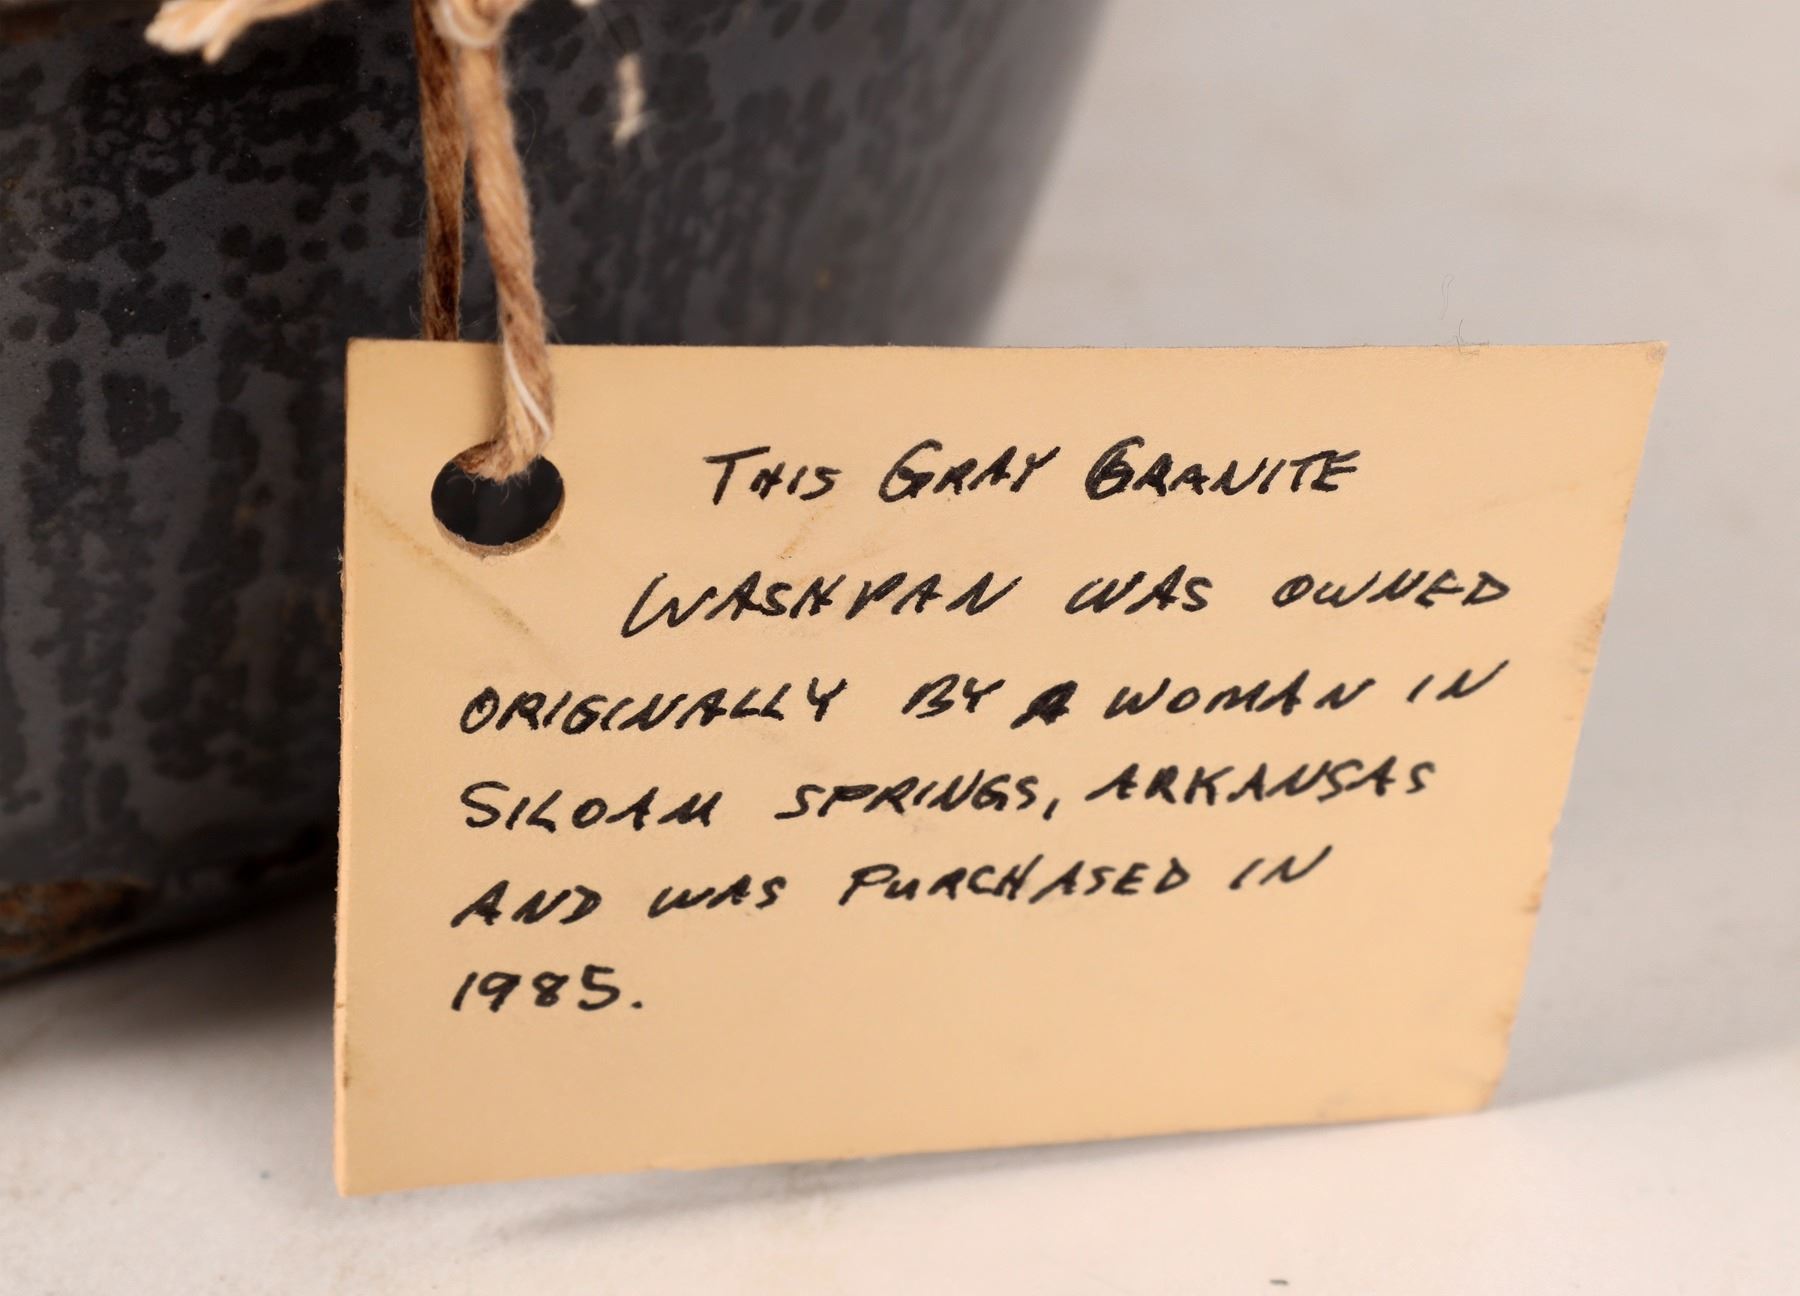 THIS GRAY GRANITE
WASHPAN WAS OWNED
ORIGINALLY BY A WOMAN IN
SILOAM SPRINGS, ARKANSAS
AND WAS PURCHASED IN
1985.